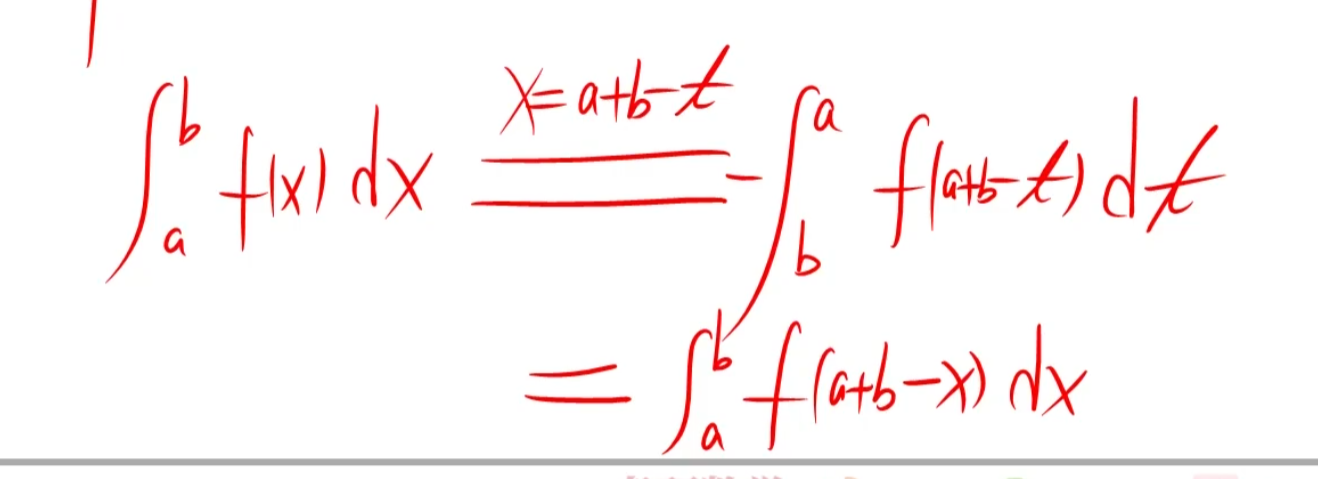 ∫_a^b f(x) dx \xlongequal{x=a+b-t} -∫_b^a f(a+b-t) dt
= ∫_a^b f(a+b-x) dx